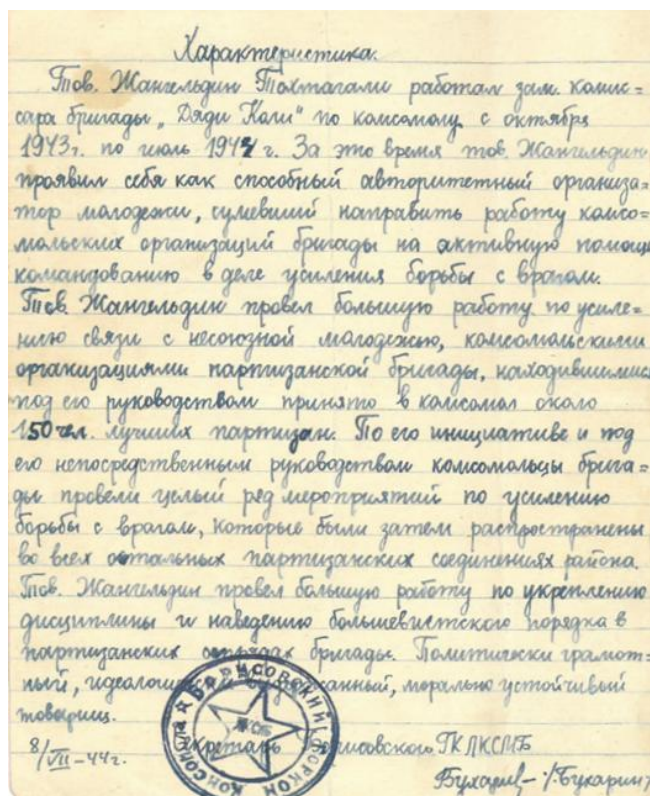 Характеристика.
Тов. Жангельдин Тохтагали работал зам. комис=
сара бригады „Дяди Коли" по комсомолу с октября
1943г. по июль 1944 г. За это время тов. Жангельдин
проявил себя как способный авторитетный организа=
тор молодежи, сумевший направить работу комсо=
мольских организаций бригады на активную помощь
командованию в деле усиления борьбы с врагом.
Тов. Жангельдин провел большую работу по усиле=
нию связи с несоюзной молодежью, комсомольскими
организациями партизанской бригады, находившимися
под его руководством принято в комсомол около
150 чел. лучших партизан. По его инициативе и под
его непосредственным руководством комсомольцы брига=
ды провели целый ряд мероприятий по усилению
борьбы с врагом, которые были затем распространены
во всех остальных партизанских соединениях района.
Тов. Жангельдин провел большую работу по укреплению
дисциплины и наведению большевистского порядка в
партизанских отрядах бригады. Политически грамот=
ный, морально устойчивый
товарищ.
БОРИСОВСКИЙ ГОРКОМ КОМСОМОЛА
ЛКСМБ
Секретарь Борисовского ГК ЛКСМБ
8/VII-44г.
Бухарин- /Бухарин/